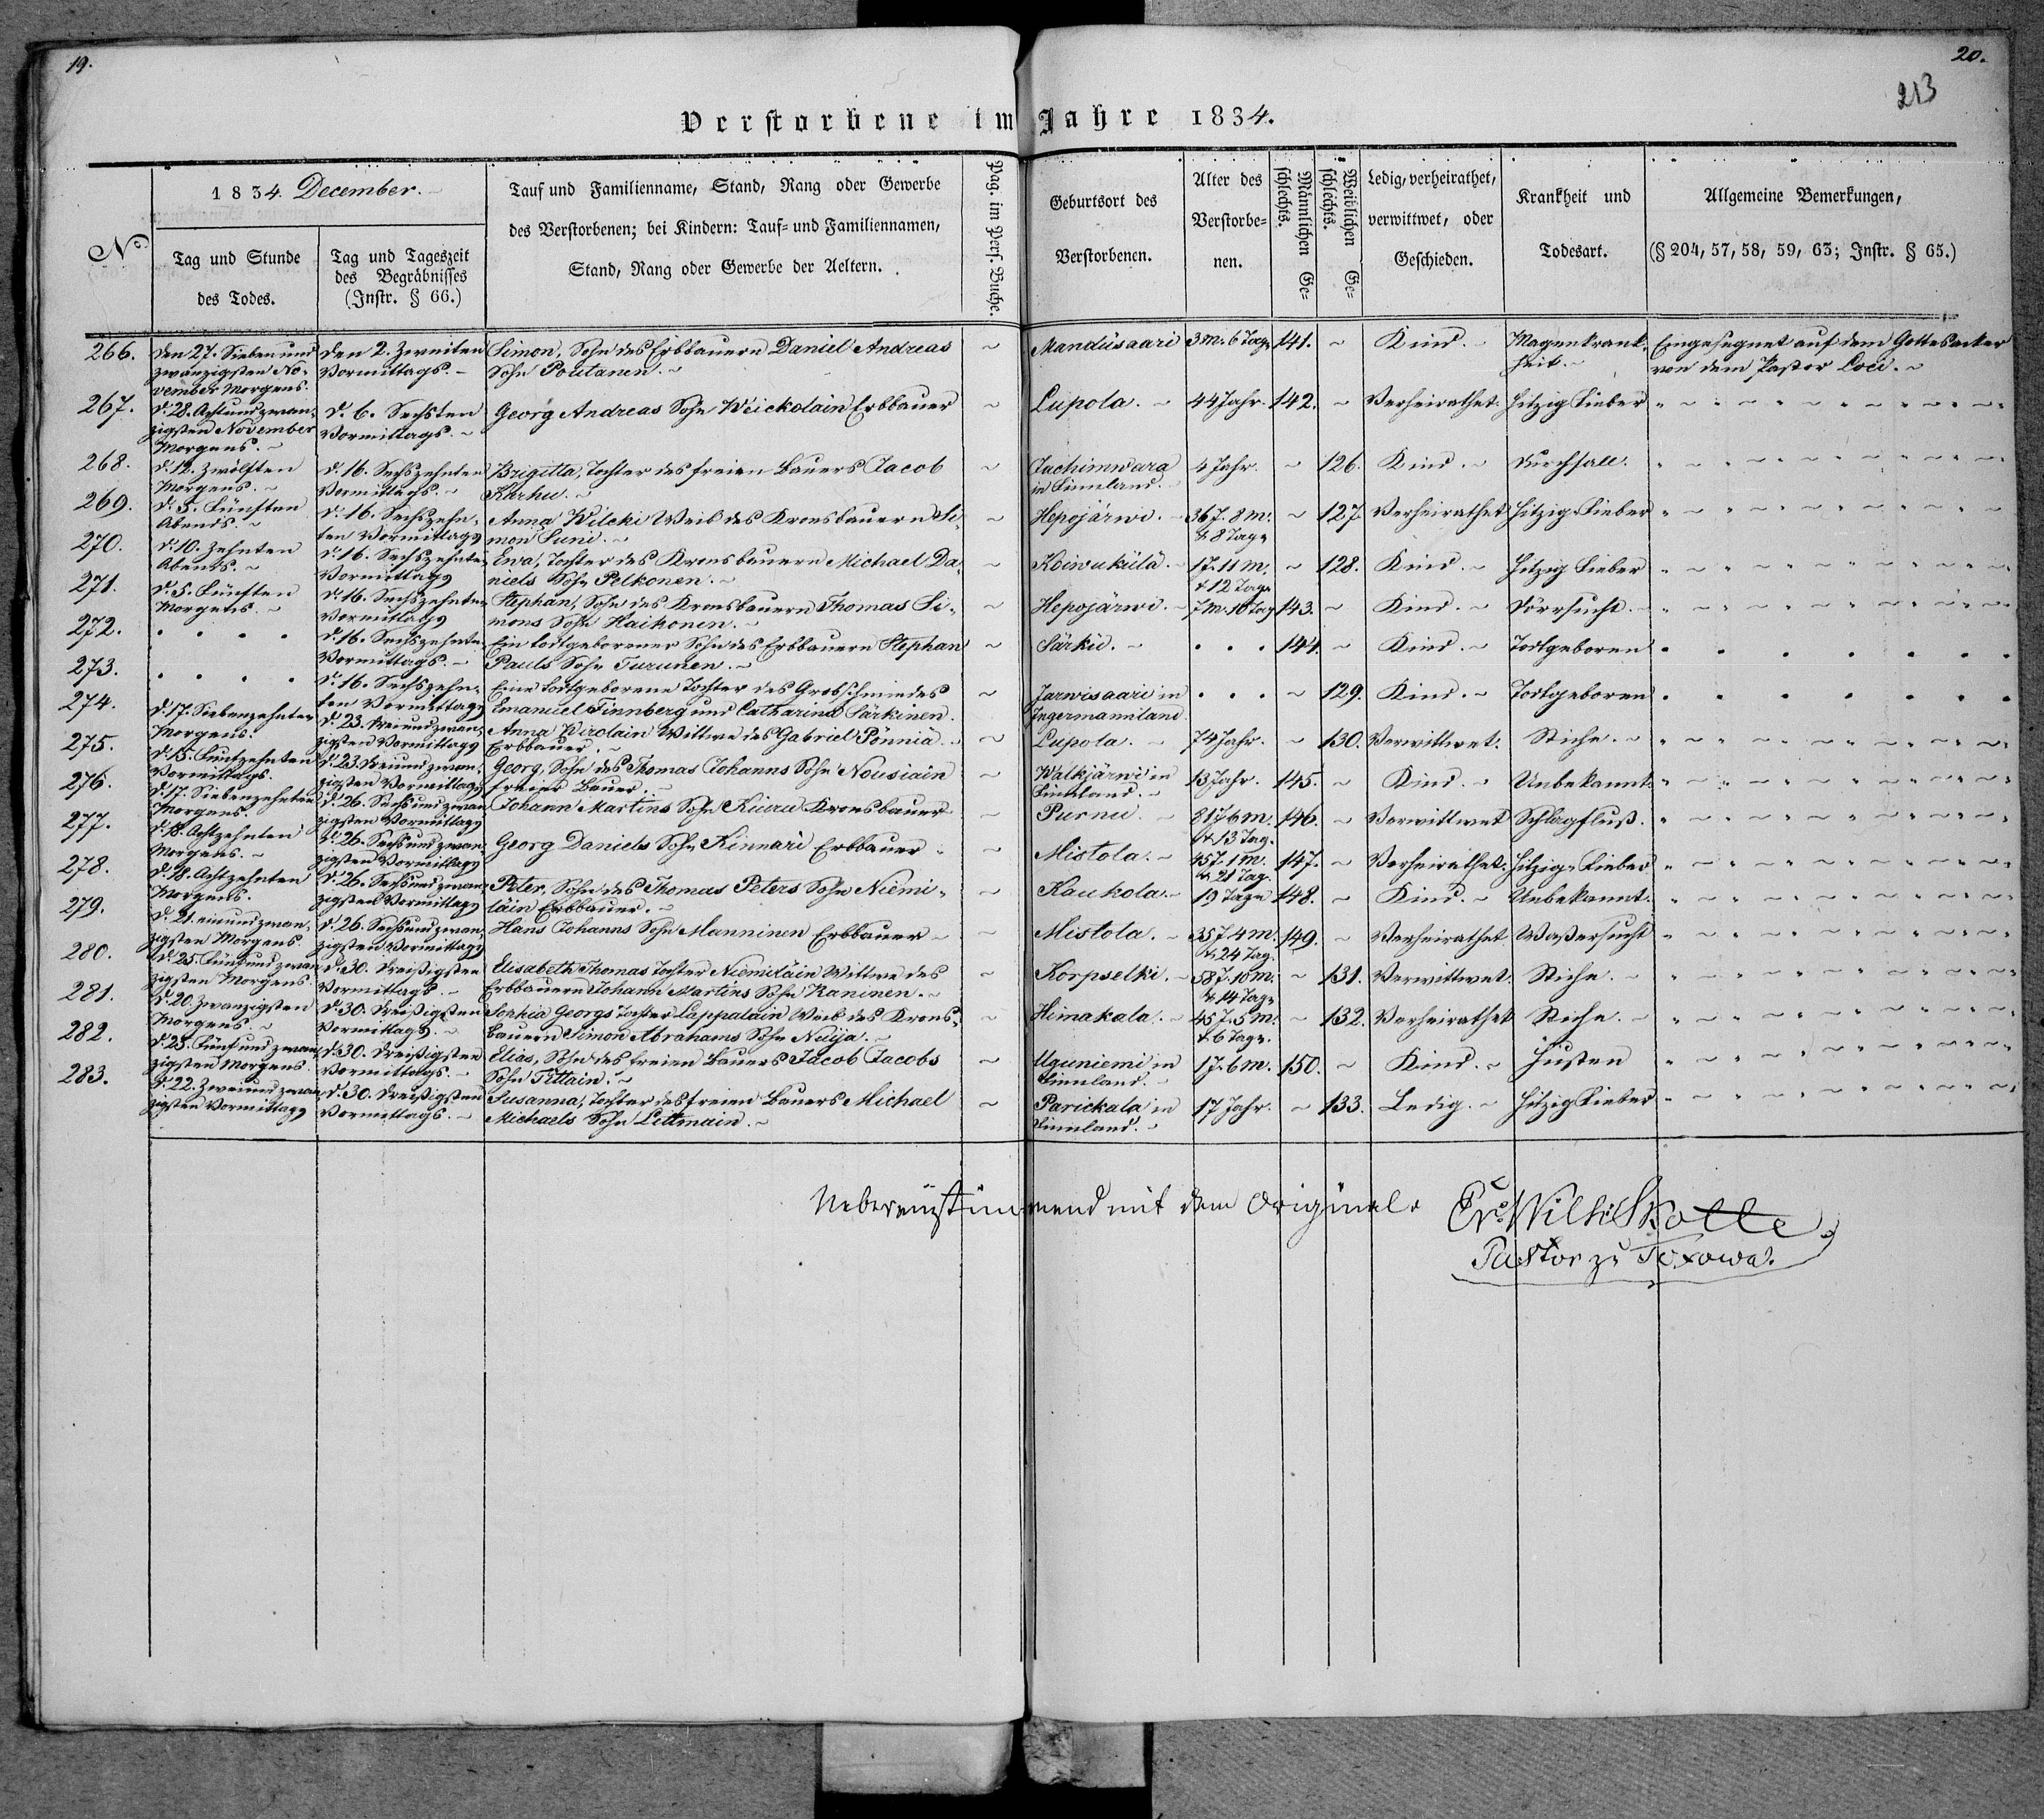 19.
20.
213
Verstorbene im Jahre 1834.
No.
1834. December.
Tag und Stunde
des Todes.
Tag und Tageszeit
des Begräbnisses
(Instr. § 66.)
Tauf und Familienname, Stand, Rang oder Gewerbe
des Verstorbenen; bei Kindern: Tauf= und Familiennamen,
Stand, Rang oder Gewerbe der Aeltern.
Pag. im Pers. Buche.
Geburtsort des
Verstorbenen.
Alter des
Verstorbe=
nen.
Männlichen Ge=
schlechts.
Weiblichen Ge=
schlechts.
Ledig, verheirathet,
verwittwet, oder
Geschieden.
Krankheit und
Todesart.
Allgemeine Bemerkungen,
(§ 204, 57, 58, 59, 63; Instr. § 65.)
266. Den 27. Sieben und Den 2. Zweiten Simon, Sohn des Erbbauern Daniel Andreas ~ Mandusaari 3 M. 6 Tage 141. ~ Kind. Magenkrank- Eingesegnet auf dem Gottesacker
zwanzigsten No- Vormittags. Sohn Poutanen. heit. von dem Pastor Loci.
vember Morgens.
267. D. 28. Achtundzwan- D. 6. Sechsten Georg Andreas Sohn Weickolain Erbbauer ~ Lupola. 44 Jahr. 142. ~ Verheirathet. Hitzig Fieber
zigsten November Vormittags.
Morgens.
268. D. 12. Zwölften D. 16. Sechszehnten Brigitta, Tochter des freien Bauers Jacob ~ Jachimwara 4 Jahr. ~ 126. Kind. Durchfall.
Morgens. Vormittags. Karhu. in Finnland.
269. D. 5. Fünften D. 16. Sechszehn- Anna Wilcki Weib des Kronsbauern Si- ~ Hepojärwi. 36 J. 8 M. ~ 127. Verheirathet Hitzig Fieber
Abends. ten Vormittags mon Suni. & 8 Tage
270. D. 10. Zehnten D. 16. Sechszehnten Ewa, Tochter des Kronsbauern Michael Da- ~ Koiwukülä. 1 J. 11 M. ~ 128. Kind. Hitzig Fieber
Abends. Vormittags niels Sohn Pelkonen. & 12 Tage
271. D. 5. Fünften D. 16. Sechszehnten Stephan, Sohn des Kronsbauern Thomas Si- ~ Hepojärwi. 7 M. 16 Tag 143. ~ Kind. Dörrsucht.
Morgens. Vormittags mons Sohn Haikonen.
272. D. 16. Sechszehnten Ein todtgeborener Sohn des Erbbauern Stephan ~ Särkü. 144. ~ Kind. Todtgeboren
Vormittags. Pauls Sohn Turunen.
273. D. 16. Sechszehn- Eine todtgeborene Tochter des Grobschmiedes ~ Jarwisaari in ~ 129. Kind. Todtgeboren
ten Vormittags Emanuel Finnberg und Catharina Särkinen. Ingermannland.
274. D. 17. Siebenzehnten D. 23. Dreiundzwan- Anna Wirolain Wittwe des Gabriel Pönniä ~ Lupola. 74 Jahr. ~ 130. Verwittwet. Stiche.
Morgens. zigsten Vormittags Erbbauer.
275. D. 15. Funfzehnten D. 23. Dreiundzwan- Georg, Sohn des Thomas Johanns Sohn Nousiain ~ Walkjärwi in 13 Jahr. 145. ~ Kind. Unbekannt.
Vormittags. zigsten Vormittags freier Bauer. Finnland.
276. D. 17. Siebenzehnten D. 26. Sechsundzwan- Johann Martins Sohn Kiuru Kronsbauer ~ Purnu. 81 J. 6 M. 146. ~ Verwittwet Schlagfluß.
Morgens. zigsten Vormittags & 13 Tag.
277. D. 18. Achtzehnten D. 26. Sechsundzwan- Georg Daniels Sohn Kinnari Erbbauer ~ Mistola. 45 J. 1 M. 147. ~ Verheirathet. Hitzig Fieber
Morgens. zigsten Vormittags & 21 Tag.
278. D. 18. Achtzehnten D. 26. Sechsundzwan- Peter, Sohn des Thomas Peters Sohn Niemi- ~ Kaukola. 19 Tage 148. ~ Kind. Unbekannt.
Morgens. zigsten Vormittags läin Erbbauer.
279. D. 21. einundzwan- D. 26. Sechsundzwan- Hans Johanns Sohn Manninen Erbbauer ~ Mistola. 35 J. 4 M. 149. ~ Verheirathet. Waßersucht
zigsten Morgens. zigsten Vormittags & 24 Tag.
280. D. 25. Fünfundzwan- D. 30. Dreißigsten Elisabeth Thomas Tochter Niemiläin Wittwe des ~ Korpselki. 58 J. 10 M. ~ 131. Verwittwet. Stiche.
zigsten Morgens. Vormittags. Erbbauern Johann Martins Sohn Kaninen. & 14 Tage
281. D. 20. Zwanzigsten D. 30. Dreißigsten Sophia Georgs Tochter Lappalain Weib des Krons- ~ Himakala. 45 J. 5 M. ~ 132. Verheirathet Stiche.
Morgens. Vormittags. bauern Simon Abrahams Sohn Nuija. & 6 Tage.
282. D. 25. Fünfundzwan- D. 30. Dreißigsten Elias, Sohn des freien Bauers Jacob Jacobs ~ Uguniemi in 1 J. 6 M. 150. ~ Kind. Husten
zigsten Morgens. Vormittags. Sohn Tittain. Finnland.
283. D. 22. Zweiundzwan- D. 30. Dreißigsten Susanna, Tochter des freien Bauers Michael ~ Parickala in 17 Jahr. ~ 133. Ledig. Hitzig Fieber
zigsten Vormittags Vormittags. Michaels Sohn Littmain. Finnland.
Uebereinstimmend mit dem Original.
Wilh. Skotte
Pastor zu Toxowa.